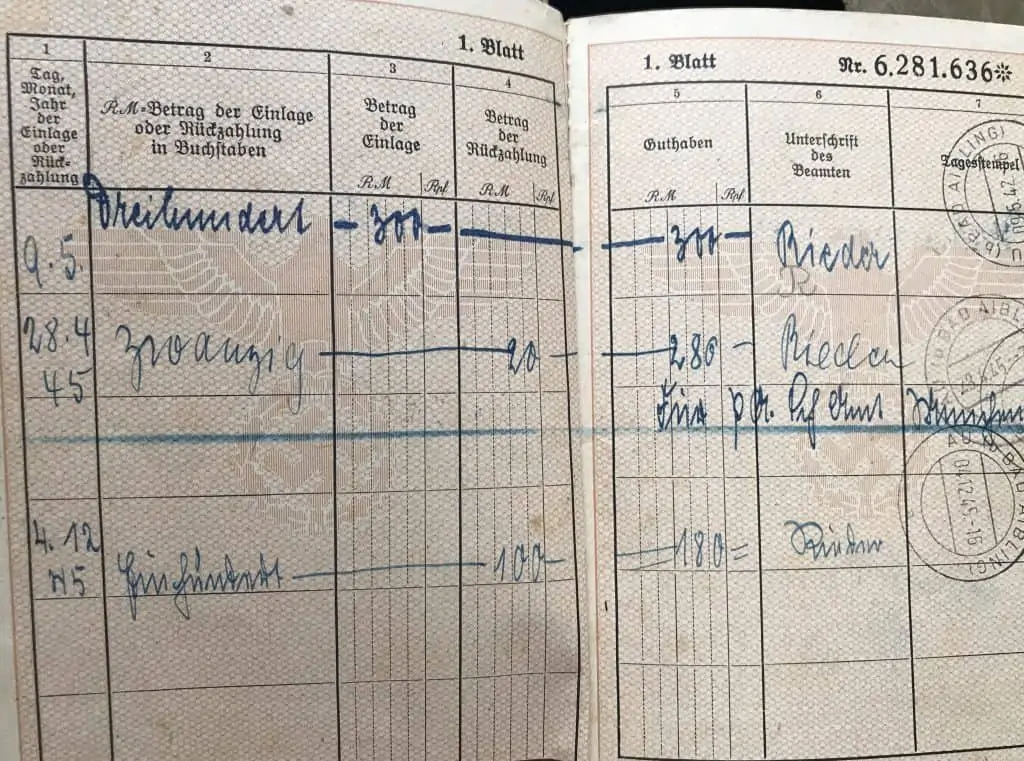 1. Blatt
1
2
3
4
Tag,
Monat,
Jahr
der
Einlage
oder
Rück-
zahlung
RM-Betrag der Einlage
oder Rückzahlung
in Buchstaben
Betrag
der
Einlage
RM Rpf
Betrag
der
Rückzahlung
RM Rpf
9.5.
Dreihundert - 300 -
28.4
45
zwanzig 20 -
4.12
45
Einhundert 100 -
1. Blatt
Nr. 6.281.636
5
6
7
Guthaben
RM Rpf
Unterschrift
des
Beamten
Tagesstempel
300 - Rieder
280 - Rieder
180 = Rieder
(BAD AIBLING)
BAD AIBL
04.12.45.-16
BAD AIBLING)